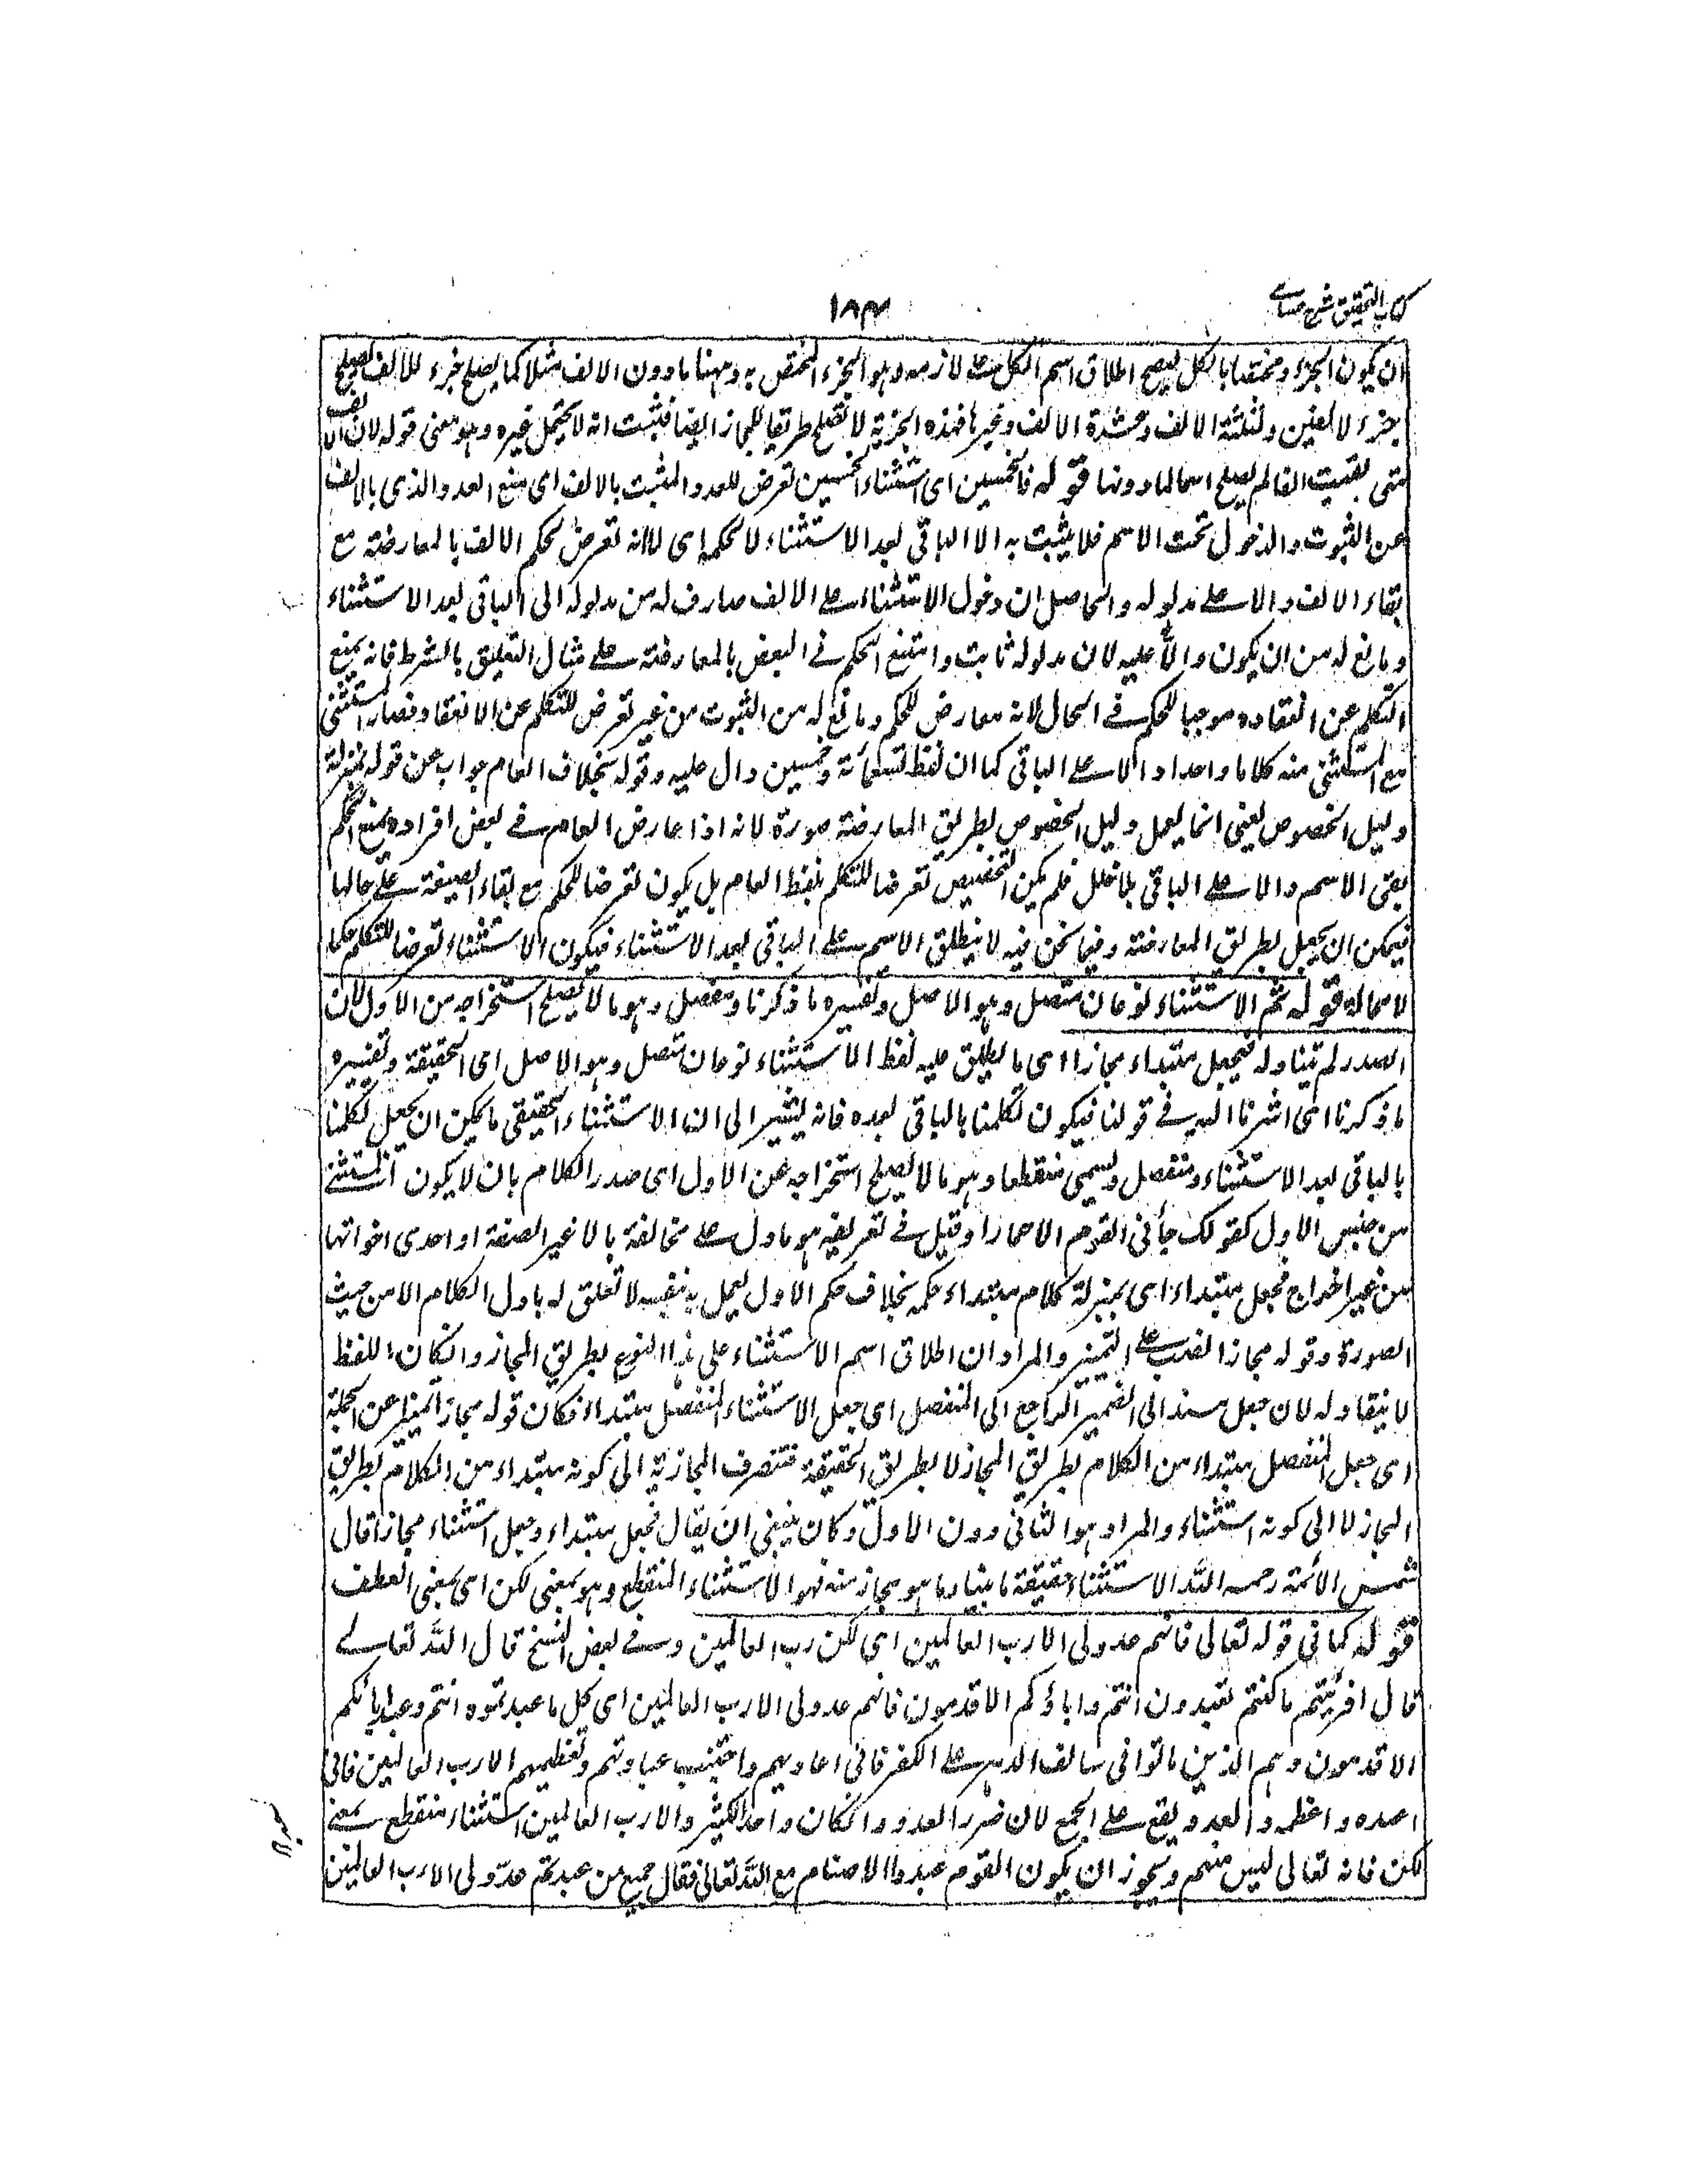 كتاب التحقيق شرح حسامى
١٨٣
ان يكون الجزء مختصا بالكل ليصح اطلاق اسم الكل على لازمه وهو الجزء المختص به وههنا ما دون الالف مثلا كما يصلح جزء للالف يصلح
جزء لالفين ولثلثة الالف وعشرة الالف وغيرها فهذه الجزئية لا تصلح طريقا للمجاز ايضا فثبت انه لا يحتمل غيره وهو معنى قوله لان الالف
متى بقيت الفا لم يصلح اسما لما دونها قوله فالخمسين اى استثناء الخمسين تعرض للعدد المثبت بالالف اى منع العدد الذى بالالف
عن الثبوت والدخول تحت الاسم فلا يثبت به الا الباقى بعد الاستثناء لا لحكمه اى لا انه تعرض لحكم الالف بالمعارضة مع
بقاء الالف دالا على مدلوله والحاصل ان دخول الاستثناء على الالف صارف له من مدلوله الى الباقى بعد الاستثناء
ومانع له من ان يكون دالا عليه لان مدلوله ثابت وامتنع الحكم فى البعض بالمعارضة على مثال التعليق بالشرط فانه يمنع
التكلم عن انعقاده موجبا للحكم فى الحال لانه معارض للحكم ومانع له من الثبوت من غير تعرض للتكلم عن الانعقاد فصار المستثنى
مع المستثنى منه كلاما واحدا دالا على الباقى كما ان لفظ تسعمائة وخمسين دال عليه وقوله بخلاف العام جواب عن قوله بمنزلة
دليل الخصوص يعنى انما يعمل دليل الخصوص بطريق المعارضة صورة لانه اذا عارض العام فى بعض افراده بمنع الحكم
بقى الاسم دالا على الباقى بلا خلل فلم يكن التخصيص تعرضا للتكلم بلفظ العام بل يكون تعرضا للحكم مع بقاء الصيغة على حالها
فيمكن ان يجعل بطريق المعارضة وفيما نحن فيه لا ينطلق الاسم على الباقى بعد الاستثناء فيكون الاستثناء تعرضا للتكلم حكما
لا محالة قوله ثم الاستثناء نوعان متصل وهو الاصل وتفسيره ما ذكرنا ومنفصل وهو ما لا يصلح استخراجه من الاول لان
الصدر لم يتناوله فيجعل مبتداء مجازا اى ما يطلق عليه لفظ الاستثناء نوعان متصل وهو الاصل اى الحقيقة وتفسيره
ما ذكرنا اى اشرنا اليه فى قولنا فيكون تكلمنا بالباقى بعده فانه يشير الى ان الاستثناء الحقيقى ما يمكن ان يجعل تكلمنا
بالباقى بعد الاستثناء ومنفصل ويسمى منقطعا وهو ما لا يصلح استخراجه عن الاول اى صدر الكلام بان لا يكون المستثنى
من جنس الاول كقولك جأنى القوم الا حمارا وقيل فى تعريفه هو ما دل على مخالفة بالا غير الصفة او احدى اخواتها
من غير اخراج فجعل مبتداء اى بمنزلة كلام مبتداء حكمه بخلاف حكم الاول يعمل به بنفسه لا تعلق له باول الكلام الا من حيث
الصورة وقوله مجازا نصب على التمييز والمراد ان اطلاق اسم الاستثناء على هذا النوع بطريق المجاز وان كان اللفظ
لا ينقاد له لان جعل مسند الى الضمير الراجع الى المنفصل اى جعل الاستثناء المنفصل مبتداء فكان قوله مجازا تمييزا عن الجملة
اى جعل المنفصل مبتداء من الكلام بطريق المجاز لا بطريق الحقيقة فتنصرف المجازية الى كونه مبتداء من الكلام بطريق
المجاز لا الى كونه استثناء والمراد هو الثانى دون الاول وكان ينبغى ان يقال فجعل مبتداء وجعل استثناء مجازا قال
شمس الائمة رحمه الله الاستثناء حقيقة ما بينا وما هو مجاز منه فهو الاستثناء المنقطع وهو بمعنى لكن اى بمعنى العطف
قوله كما فى قوله تعالى فانهم عدو لى الا رب العالمين اى لكن رب العالمين وفى بعض النسخ قال الله تعالى
قال افرئيتم ما كنتم تعبدون انتم واباؤكم الاقدمون فانهم عدو لى الا رب العالمين اى كل ما عبدتموه انتم وعبد ابائكم
الاقدمون وهم الذين ماتوا فى سالف الدهر على الكفر فانى اعاديهم واجتنب عبادتهم وتعظيمهم الا رب العالمين فانى
اعبده واعظمه والعدو يقع على الجمع لان ضرر العدو وان كان واحدا لكثير والا رب العالمين استثناء منقطع بمعنى
لكن فانه تعالى ليس منهم ويجوز ان يكون القوم عبدوا الاصنام مع الله تعالى فقال جميع من عبدتم عدو لى الا رب العالمين